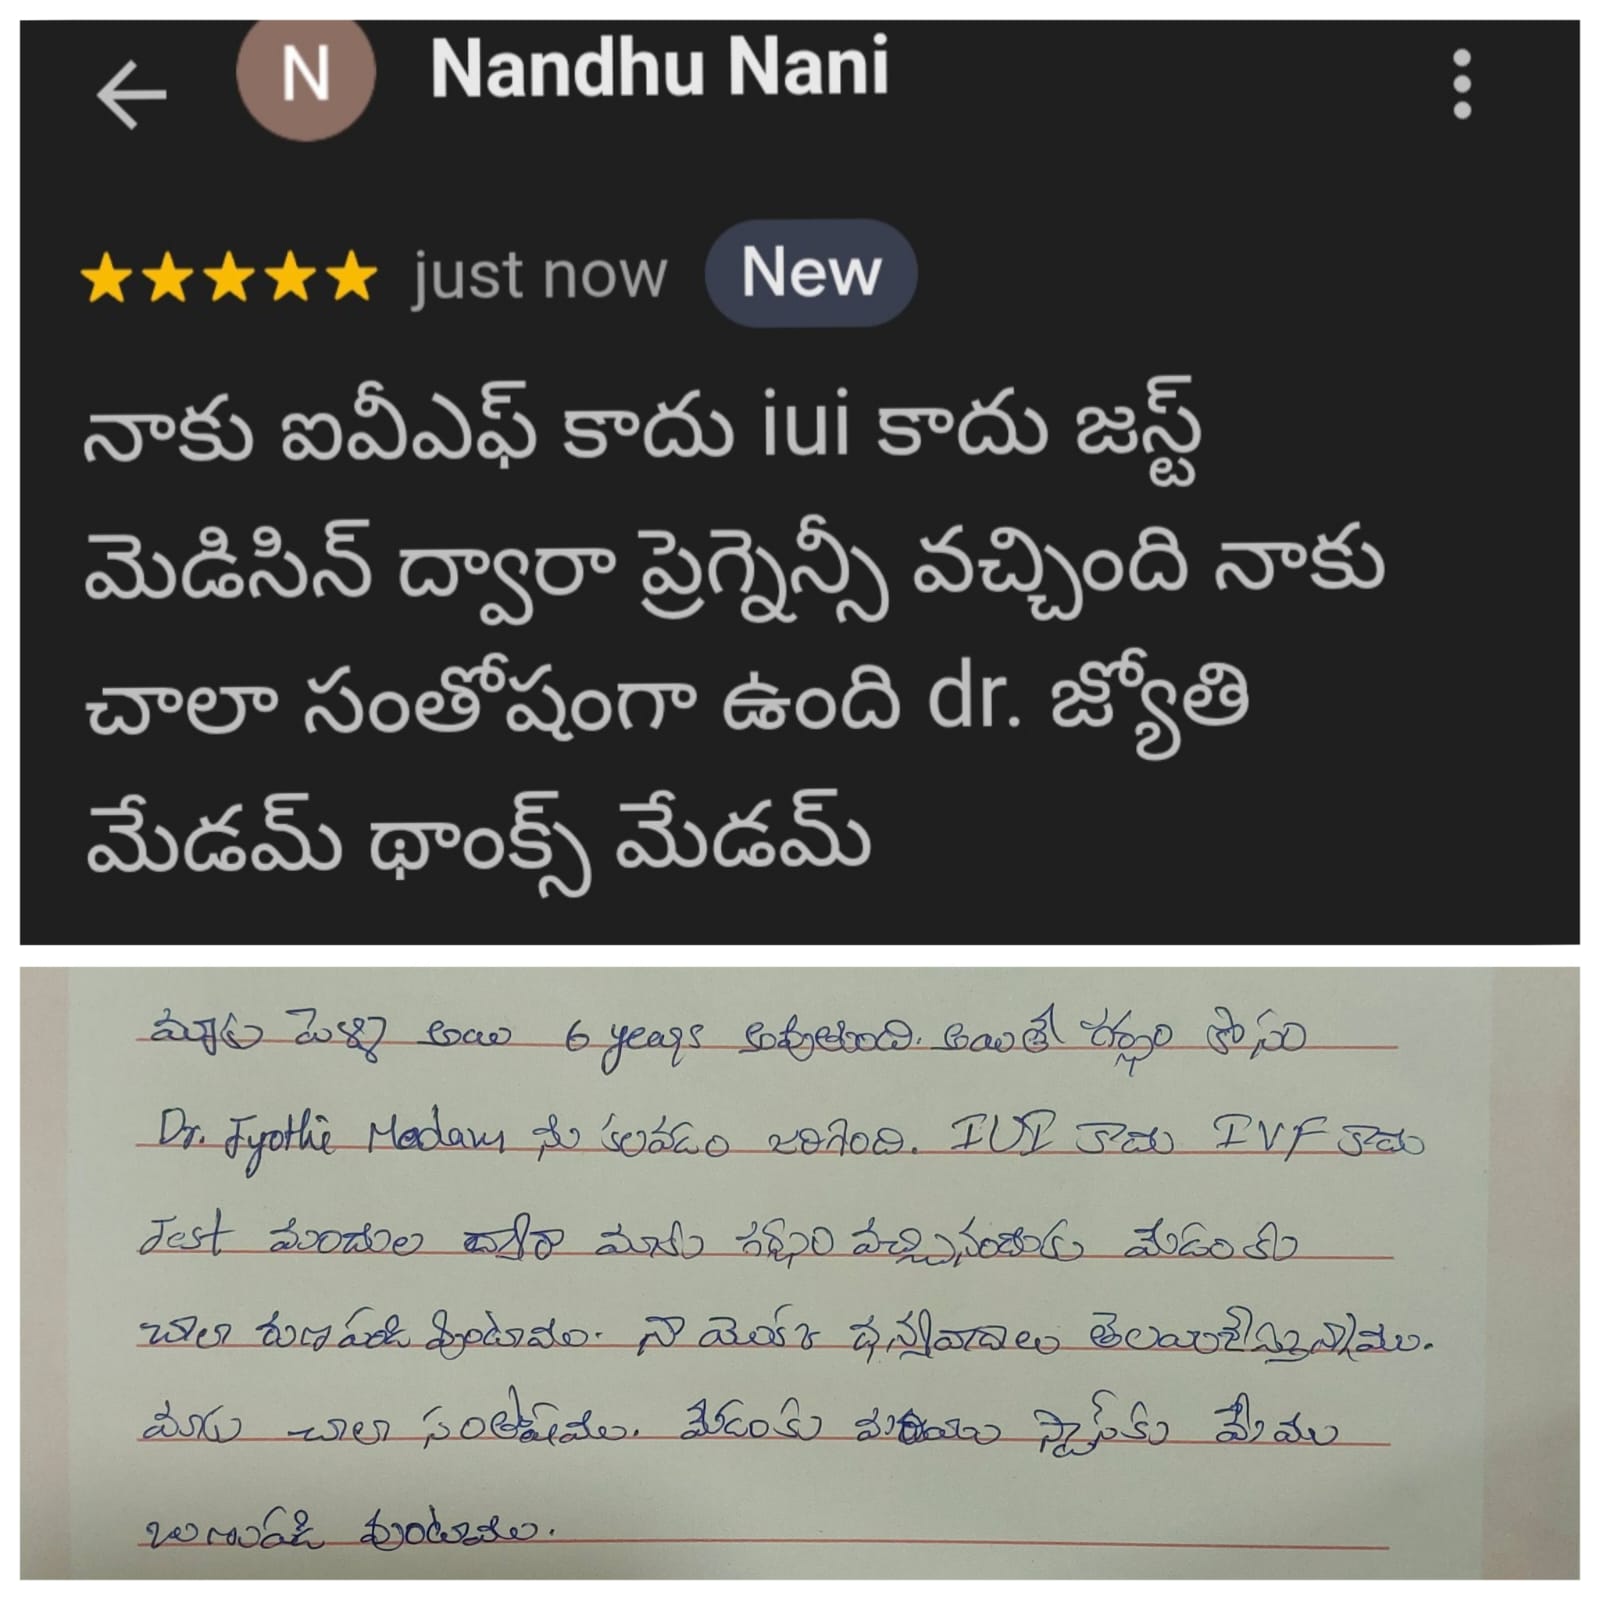 N Nandhu Nani
just now New
నాకు ఐవీఎఫ్ కాదు iui కాదు జస్ట్
మెడిసిన్ ద్వారా ప్రెగ్నెన్సీ వచ్చింది నాకు
చాలా సంతోషంగా ఉంది dr. జ్యోతి
మేడమ్ థాంక్స్ మేడమ్
మాకు పెళ్ళి అయి 6 years అవుతుంది. అయితే గర్భం కోసం
Dr. Jyothi Madam ను కలవడం జరిగింది. IUI కాదు IVF కాదు
Jest మందుల ద్వారా మాకు గర్భం వచ్చినందుకు మేడంకు
చాలా రుణపడి వుంటాము. నా యొక్క ధన్యవాదాలు తెలియచేస్తున్నాము.
మాకు చాలా సంతోషము. మేడంకు మరియు స్టాఫ్‌కు మేము
ఋణపడి వుంటాము.